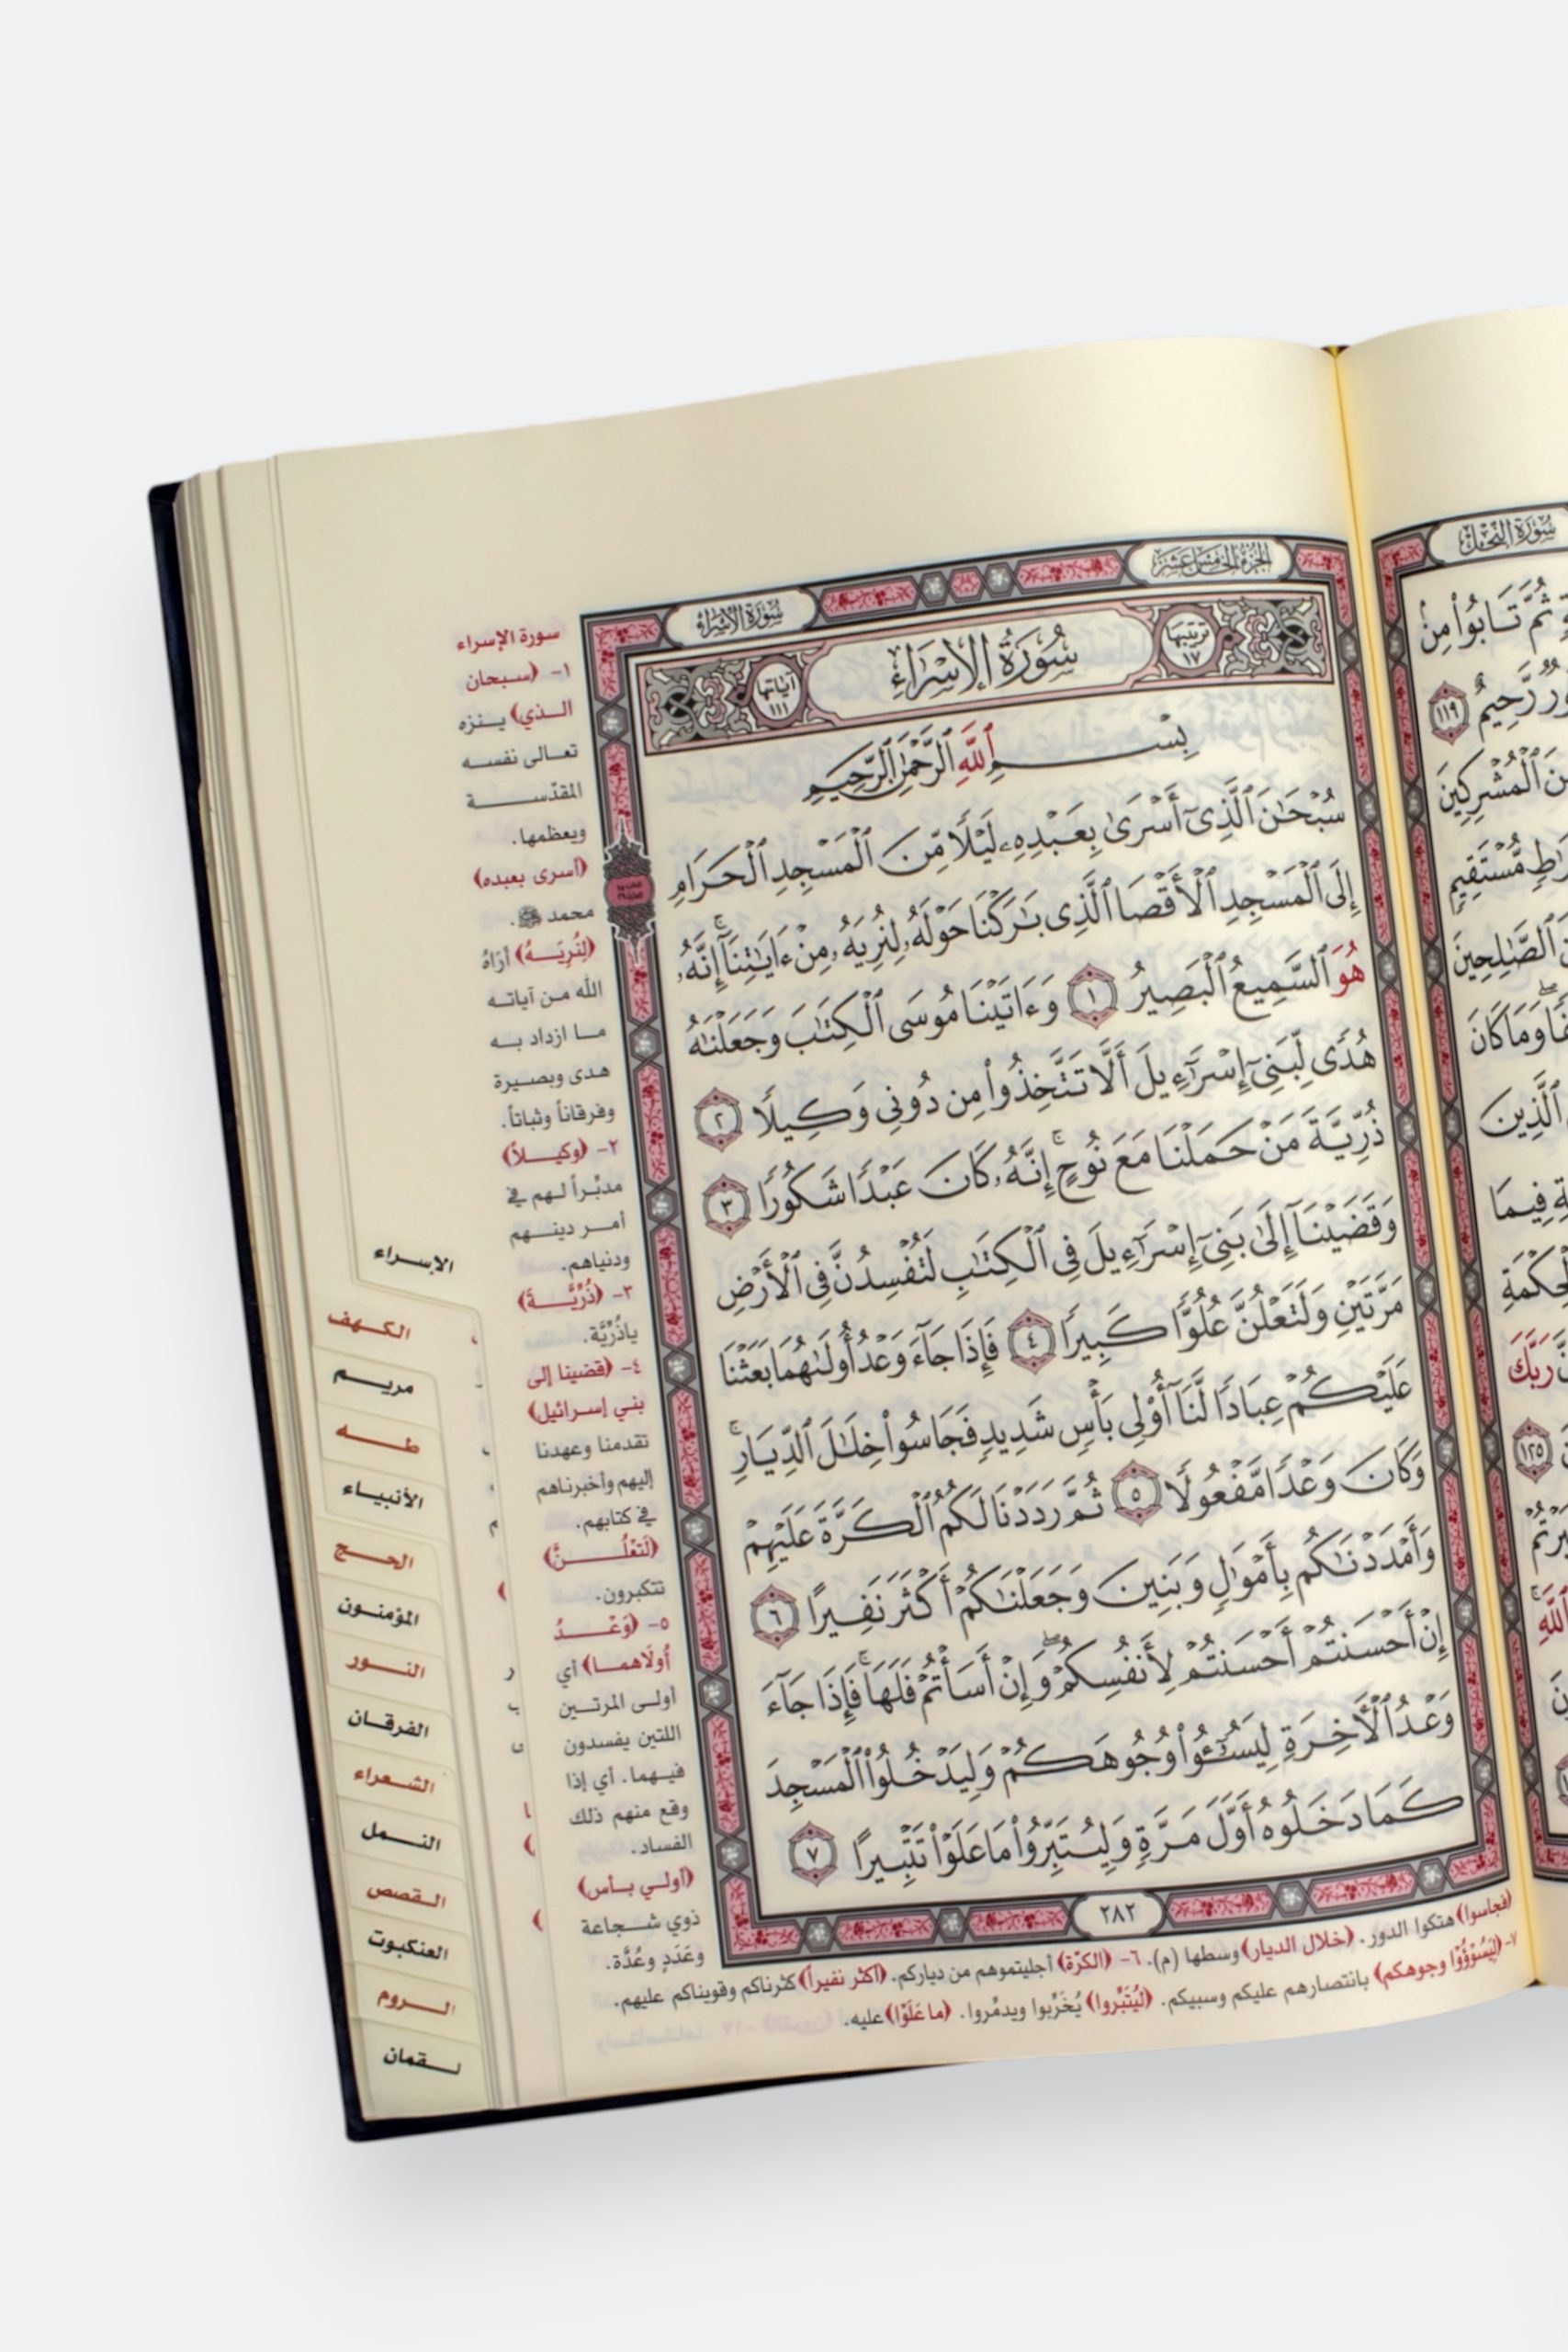 سُورَةُ النَّحْل
ثُمَّ تَابُوا۟ مِنۢ
رَّحِيمٌ ١١٩
ٱلْمُشْرِكِينَ
مُّسْتَقِيمٍ
ٱلصَّٰلِحِينَ
وَمَا كَانَ
ٱلَّذِينَ
فِيمَا
رَبَّكَ
١٢٥
الجزء الخامس عشر
سُورَةُ الإِسْرَاء
ترتيبها ١٧
سُورَةُ الإِسْرَاءِ
آياتها ١١١
بِسْمِ ٱللَّهِ ٱلرَّحْمَٰنِ ٱلرَّحِيمِ
سُبْحَٰنَ ٱلَّذِىٓ أَسْرَىٰ بِعَبْدِهِۦ لَيْلًا مِّنَ ٱلْمَسْجِدِ ٱلْحَرَامِ
إِلَى ٱلْمَسْجِدِ ٱلْأَقْصَا ٱلَّذِى بَٰرَكْنَا حَوْلَهُۥ لِنُرِيَهُۥ مِنْ ءَايَٰتِنَآ ۚ إِنَّهُۥ
هُوَ ٱلسَّمِيعُ ٱلْبَصِيرُ ١ وَءَاتَيْنَا مُوسَى ٱلْكِتَٰبَ وَجَعَلْنَٰهُ
هُدًى لِّبَنِىٓ إِسْرَٰٓءِيلَ أَلَّا تَتَّخِذُوا۟ مِن دُونِى وَكِيلًا ٢
ذُرِّيَّةَ مَنْ حَمَلْنَا مَعَ نُوحٍ ۚ إِنَّهُۥ كَانَ عَبْدًا شَكُورًا ٣
وَقَضَيْنَآ إِلَىٰ بَنِىٓ إِسْرَٰٓءِيلَ فِى ٱلْكِتَٰبِ لَتُفْسِدُنَّ فِى ٱلْأَرْضِ
مَرَّتَيْنِ وَلَتَعْلُنَّ عُلُوًّا كَبِيرًا ٤ فَإِذَا جَآءَ وَعْدُ أُولَىٰهُمَا بَعَثْنَا
عَلَيْكُمْ عِبَادًا لَّنَآ أُو۟لِى بَأْسٍ شَدِيدٍ فَجَاسُوا۟ خِلَٰلَ ٱلدِّيَارِ ۚ
وَكَانَ وَعْدًا مَّفْعُولًا ٥ ثُمَّ رَدَدْنَا لَكُمُ ٱلْكَرَّةَ عَلَيْهِمْ
وَأَمْدَدْنَٰكُم بِأَمْوَٰلٍ وَبَنِينَ وَجَعَلْنَٰكُمْ أَكْثَرَ نَفِيرًا ٦
إِنْ أَحْسَنتُمْ أَحْسَنتُمْ لِأَنفُسِكُمْ ۖ وَإِنْ أَسَأْتُمْ فَلَهَا ۚ فَإِذَا جَآءَ
وَعْدُ ٱلْءَاخِرَةِ لِيَسُۥٓـُٔوا۟ وُجُوهَكُمْ وَلِيَدْخُلُوا۟ ٱلْمَسْجِدَ
كَمَا دَخَلُوهُ أَوَّلَ مَرَّةٍ وَلِيُتَبِّرُوا۟ مَا عَلَوْا۟ تَتْبِيرًا ٧
٢٨٢
سورة الإسراء
١- ﴿سبحان
الذي﴾ ينزه
تعالى نفسه
المقدّسة
ويعظمها.
﴿أسرى بعبده﴾
محمد ﷺ.
﴿لِنُرِيَهُ﴾ أرَاهُ
الله من آياته
ما ازداد به
هدى وبصيرة
وفرقاناً وثباتاً.
٢- ﴿وكيلاً﴾
مدبِّراً لهم في
أمر دينهم
ودنياهم.
٣- ﴿ذُرِّيَّةَ﴾
ياذُرِّيَّة.
٤- ﴿قضينا إلى
بني إسرائيل﴾
تقدمنا وعهدنا
إليهم وأخبرناهم
في كتابهم.
﴿لَتَعْلُنَّ﴾
تتكبرون.
٥- ﴿وَعْدُ
أُولَاهما﴾ أي
أولى المرتين
اللتين يفسدون
فيهما. أي إذا
وقع منهم ذلك
الفساد.
﴿أولي بأس﴾
ذوي شجاعة
وعَدَدٍ وعُدَّة.
﴿فجاسوا﴾ هتكوا الدور. ﴿خلال الديار﴾ وسطها (م). ٦- ﴿الكَرّة﴾ أجليتموهم من دياركم. ﴿أكثر نفيراً﴾ كثرناكم وقويناكم عليهم.
٧- ﴿لِيَسُوْؤُوْا وجوهكم﴾ بانتصارهم عليكم وسبيكم. ﴿لِيُتَبِّروا﴾ يُخَرِّبوا ويدمِّروا. ﴿ما عَلَوْا﴾ عليه.
الإسراء
الكهف
مريم
طه
الأنبياء
الحج
المؤمنون
النور
الفرقان
الشعراء
النمل
القصص
العنكبوت
الروم
لقمان